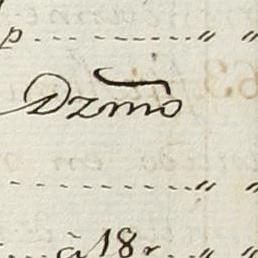 p........ 〃 〃
Dzmo
........ 〃 〃
.... a 18 r... 〃 〃